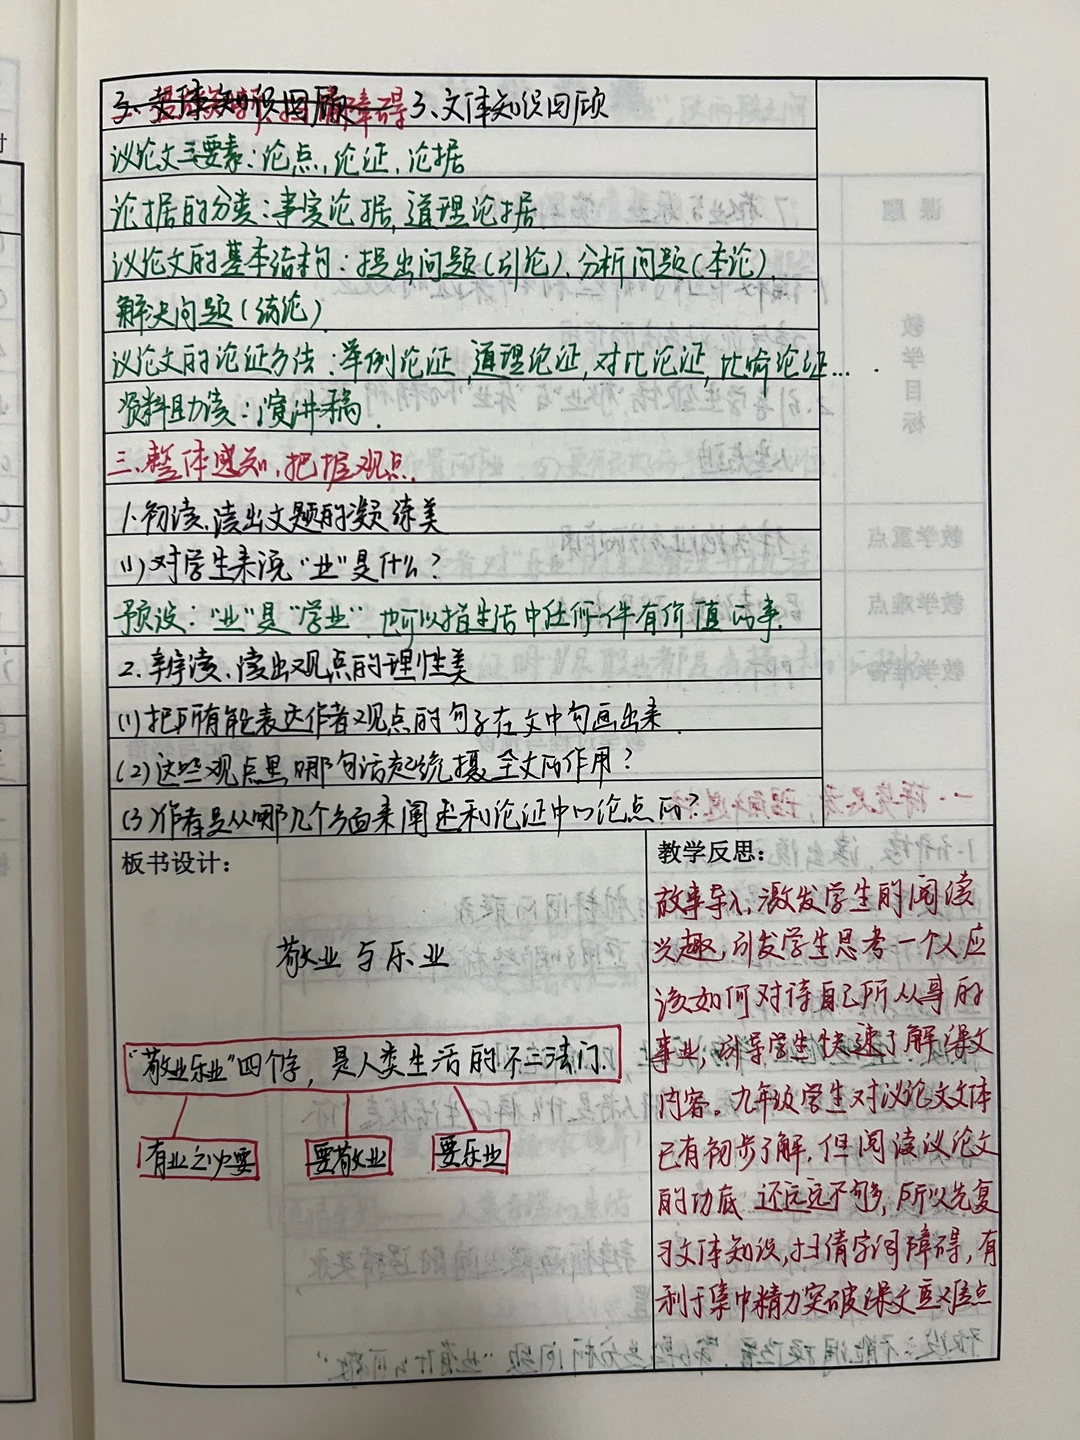 3、文体知识回顾
议论文三要素：论点，论证，论据
论据的分类：事实论据，道理论据
议论文的基本结构：提出问题（引论）、分析问题（本论）、
解决问题（结论）
议论文的论证方法：举例论证，道理论证，对比论证，比喻论证…
资料助读：演讲稿.
三、整体感知，把握观点.
1、初读、读出文题的凝练美
（1）对学生来说“业”是什么？
预设：“业”是“学业”，也可以指生活中任何一件有价值的事.
2、辨读、读出观点的理性美
（1）把所有能表达作者观点的句子在文中勾画出来.
（2）这些观点里哪句话起统摄全文的作用？
（3）作者是从哪几个方面来阐述和论证中心论点的？
板书设计：
敬业与乐业
“敬业乐业”四个字，是人类生活的不二法门.
有业之必要
要敬业
要乐业
教学反思：
故事导入，激发学生的阅读
兴趣，引发学生思考一个人应
该如何对待自己所从事的
事业，引导学生快速了解课文
内容。九年级学生对议论文文体
已有初步了解，但阅读议论文
的功底 还远远不够，所以先复
习文体知识，扫清字词障碍，有
利于集中精力突破课文重难点